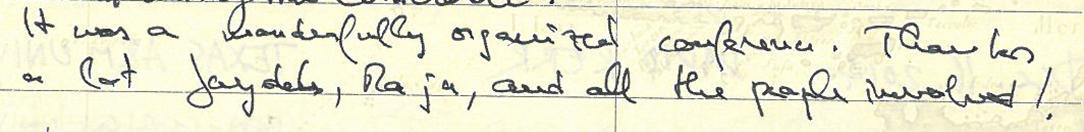 It was a wonderfully organized conference. Thanks
a lot Jaydeb, Raja, and all the people involved!